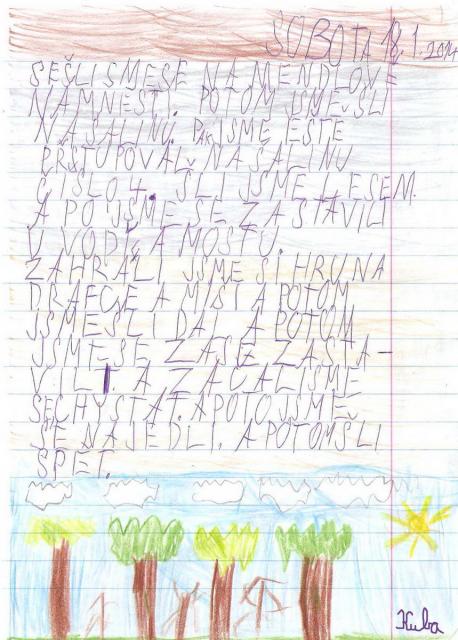 SOBOTA 18.1.2014
SEŠLI SMESE NA MENDLOVĚ
NAMNESTI. POTOM JSME ŠLI
NA ŠALINU. PAK JSME JESTE
PRSTUPOVALI NA ŠALINU
ČISLO 4. ŠLI JSME LESEM.
A POTJSME SE ZASTAVILI
U VODY A MOSTU.
ZAHRALI JSME SI HRU NA
DRAFCE A MISI A POTOM
JSMEŠLI DAL A POTOM
JSME SE ZASE ZASTA-
VILI. A ZAČALI SME
SECHYSTAT. A POTOJSME
SE NAJEDLI. A POTOMŠLI
SPET.
Kuba